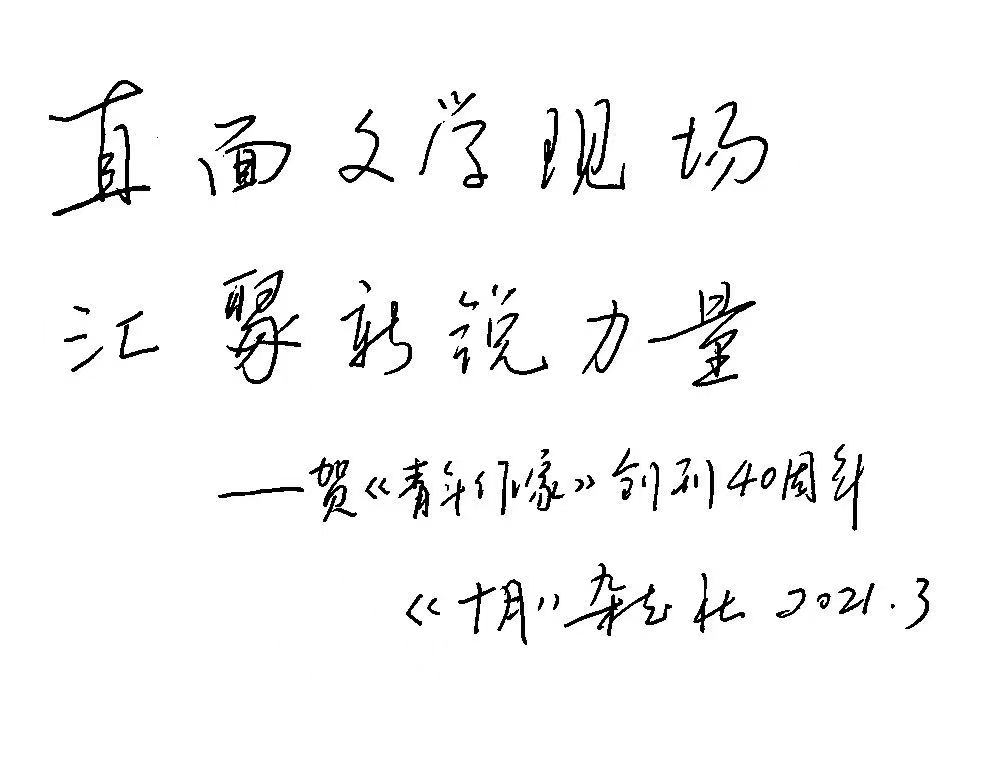 直面文学现场
汇聚新锐力量
——贺《青年作家》创刊40周年
《十月》杂志社 2021.3